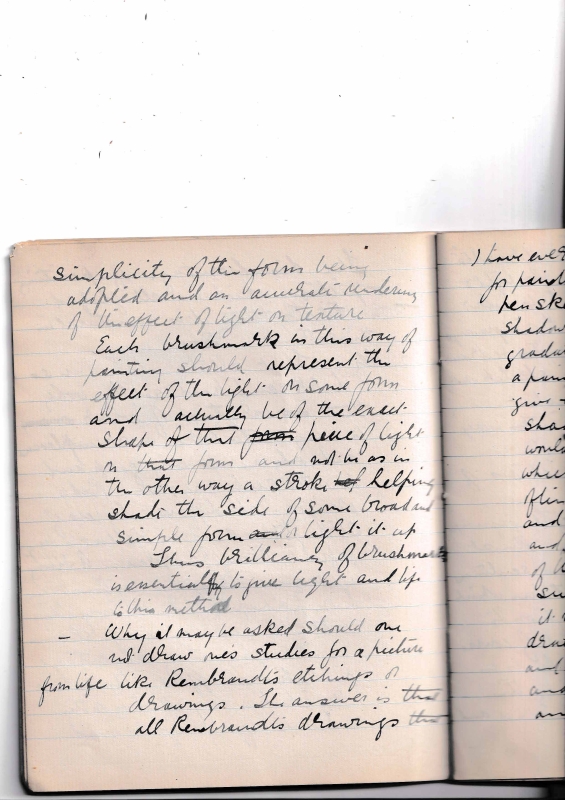 simplicity of the forms being
adopted and an accurate rendering
of the effect of light on texture
Each brushmark in this way of
painting should represent the
effect of the light on some form
and actually be of the exact
shape of that form piece of light
on that form and not be as in
the other way a stroke helping
shade the side of some broad and
simple form and light it up
Thus brilliancy of brushmarks
is essential to give light and life
to this method
– Why it may be asked should one
not draw one's studies for a picture
from life like Rembrandt's etchings or
drawings. The answer is that
all Rembrandt's drawings that
I have ever
for paint
pen ske
shadow
gradu
a pain
give
sha
would
when
often
and
and
of
su
it
draw
and
and
an